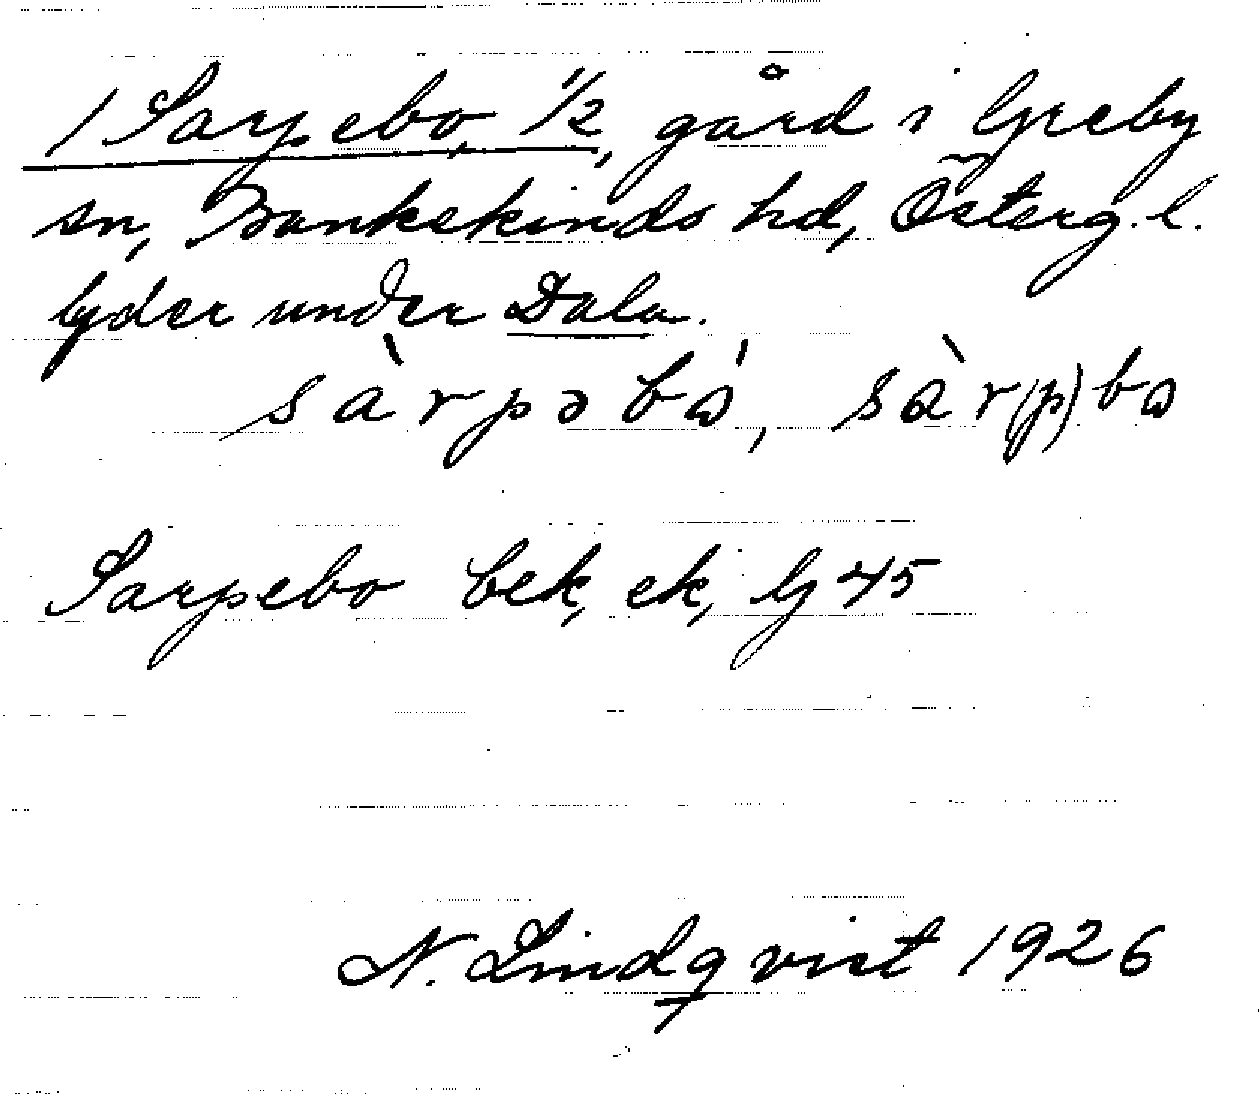 1 Sarpebo, 1/2, gård i Greby
sn, Bankekinds hd, Österg. l.
lyder under Dala.
sàrpəbɷ́, sàr(p)bɷ
Sarpebo bek, ek, lj 45
N. Lindqvist 1926